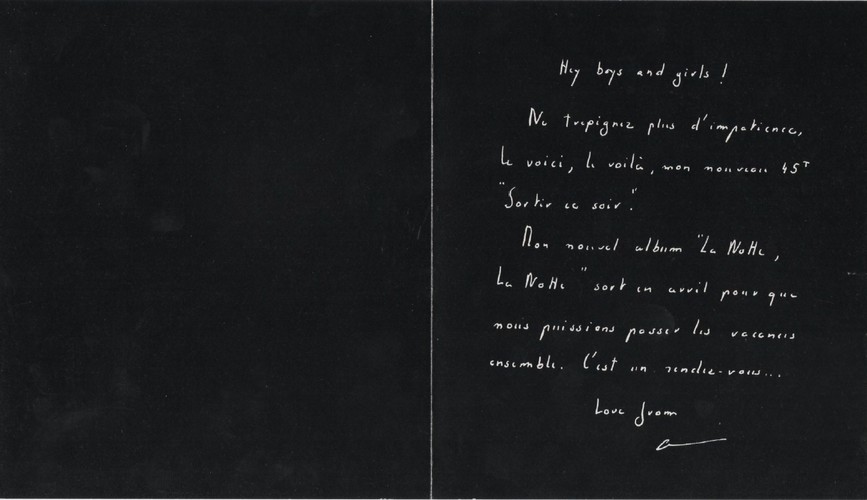 Hey boys and girls !
Ne trepignez plus d'impatience,
le voici, le voilà, mon nouveau 45T
"Sortir ce soir".
Mon nouvel album "La Notte,
La Notte" sort en avril pour que
nous puissions passer les vacances
ensemble. C'est un rendez-vous...
Love from